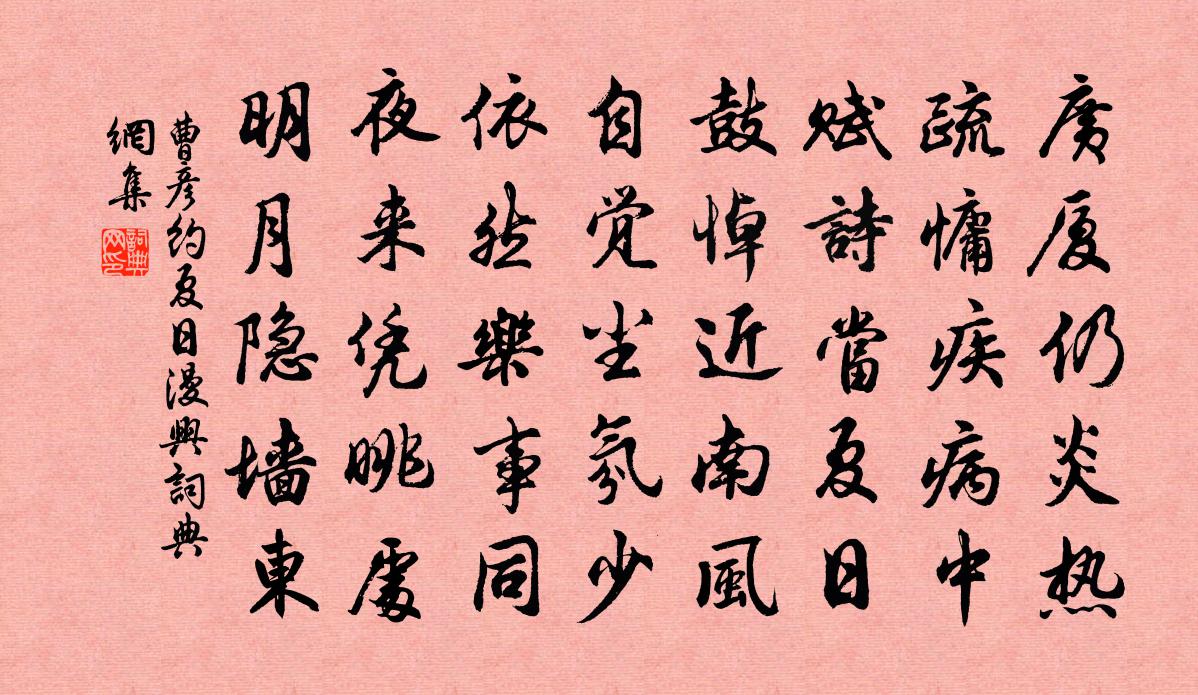 广厦仍炎热
疏慵疾病中
赋詩當夏日
鼓棹近南風
自觉尘氛少
依然樂事同
夜来凭眺處
明月隐墙東
曹彦约夏日漫興詞典
網集
詞典
网印